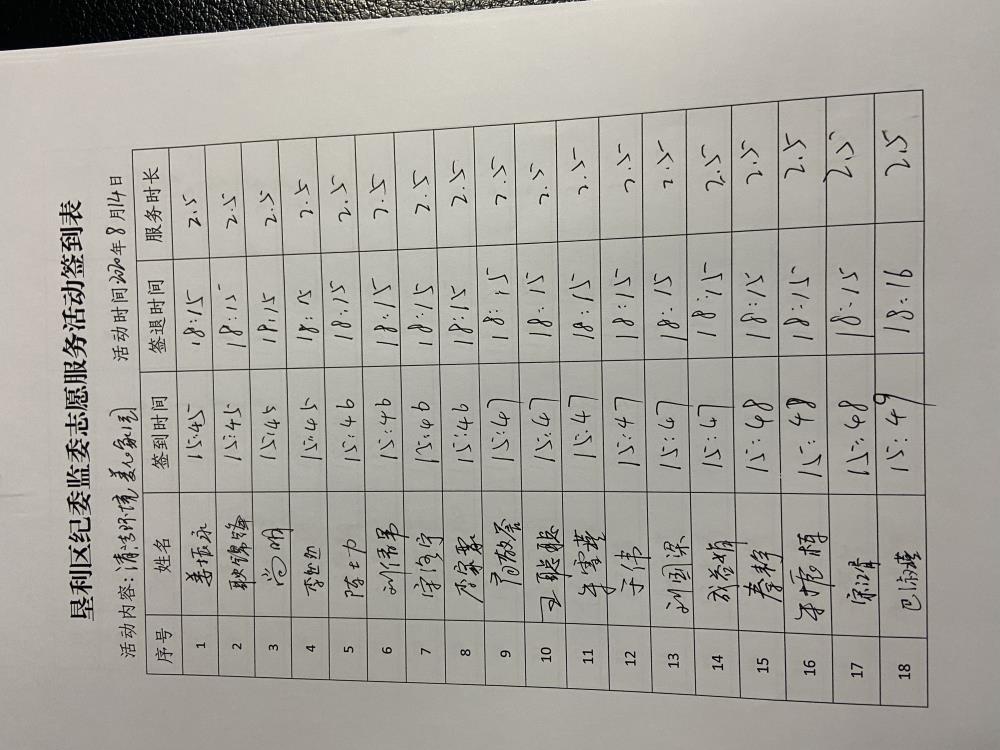 垦利区纪委监委志愿服务活动签到表
活动内容:清洁环境 美化家园 活动时间2020年8月14日
序号 姓名 签到时间 签退时间 服务时长
1 姜振永 15:45 18:15 2.5
2 耿锦锋 15:45 18:15 2.5
3 尚明 15:45 18:15 2.5
4 15:45 18:15 2.5
5 陈士力 15:46 18:15 2.5
6 15:46 18:15 2.5
7 15:46 18:15 2.5
8 李家霖 15:46 18:15 2.5
9 15:47 18:15 2.5
10 王聪聪 15:47 18:15 2.5
11 15:47 18:15 2.5
12 于伟 15:47 18:15 2.5
13 刘国梁 15:47 18:15 2.5
14 15:47 18:15 2.5
15 15:48 18:15 2.5
16 15:48 18:15 2.5
17 15:48 18:15 2.5
18 15:49 18:16 2.5